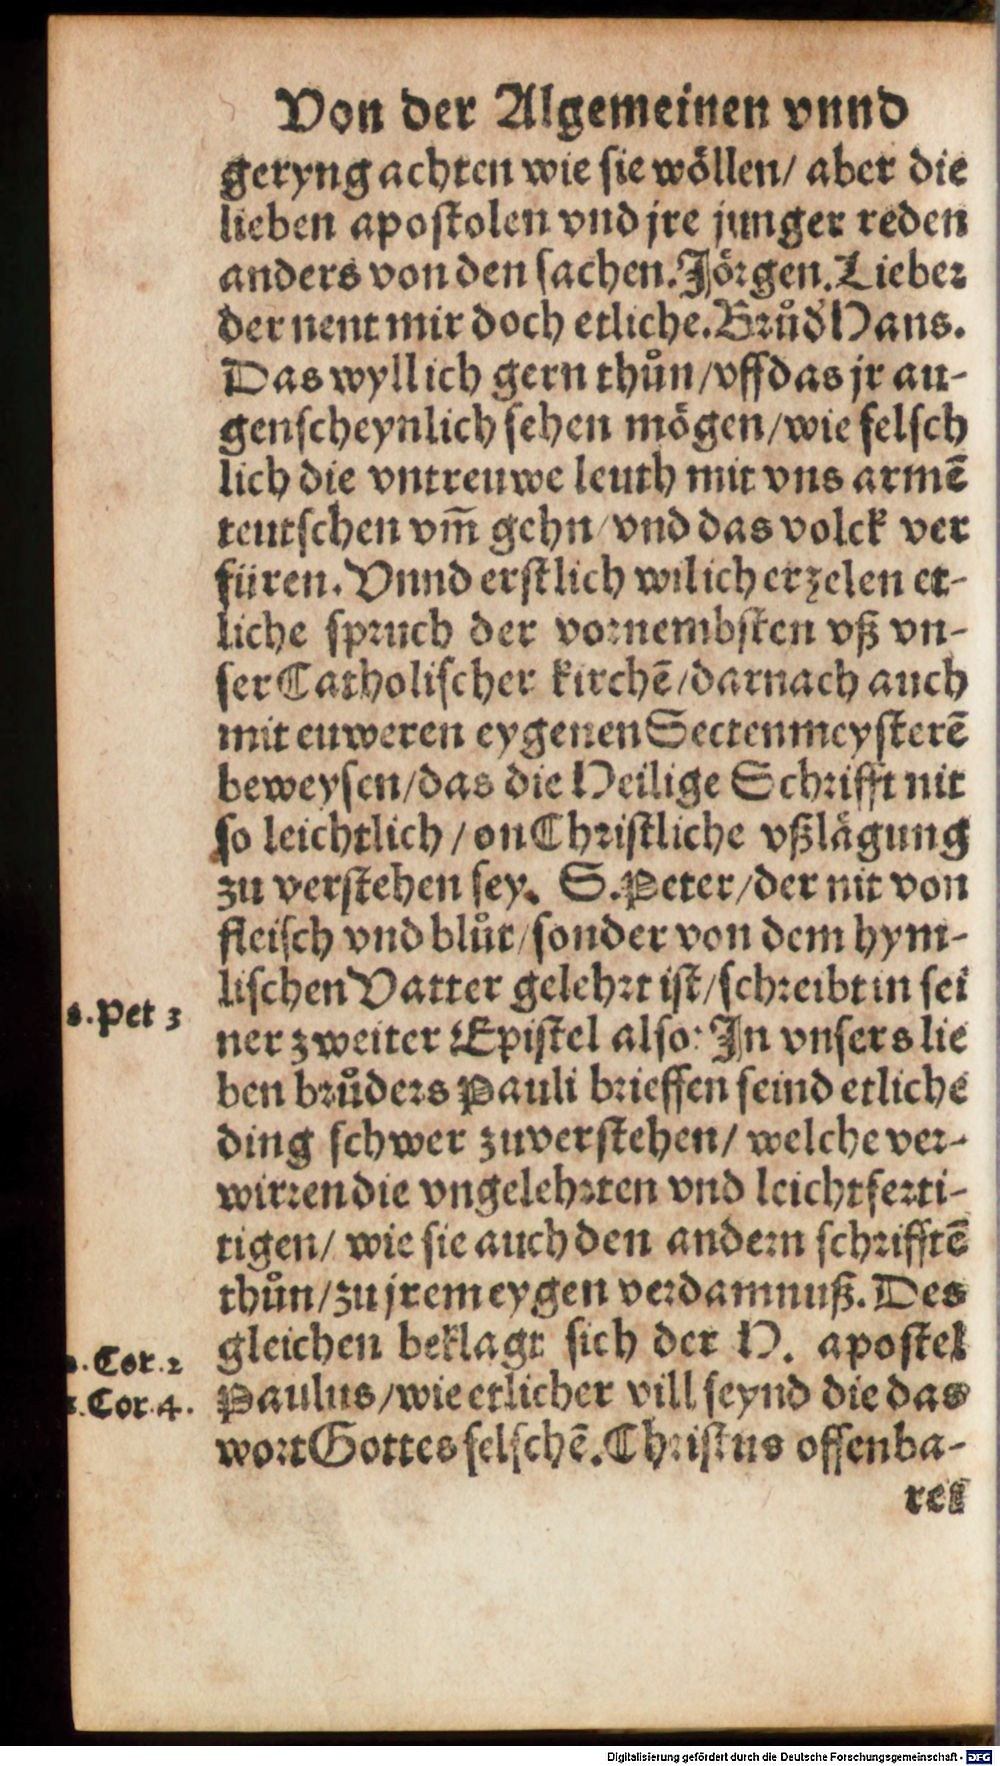 Von der Algemeinen vnnd
geryng achten wie sie wöllen/ aber die
lieben apostolen vnd jre junger reden
anders von den sachen. Jörgen. Lieber
der nent mir doch etliche. Bruͦd' Hans.
Das wyll ich gern thuͦn/ vff das jr au-
genscheynlich sehen mögen/ wie felsch
lich die vntreuwe leuth mit vns armē
teutschen vm̄ gehn/ vnd das volck ver
füren. Vnnd erstlich wil ich erzelen et-
liche spruch der vornembsten vß vn-
ser Catholischer kirchē/ darnach auch
mit euweren eygenen Sectenmeysterē
beweysen/ das die Heilige Schrifft nit
so leichtlich/ on Christliche vßlägung
zu verstehen sey. S. Peter/ der nit von
fleisch vnd bluͦt/ sonder von dem hym-
lischen Vatter gelehrt ist/ schreibt in sei
s. Pet 3
ner zweiter Epistel also: In vnsers lie
ben bruͦders Pauli brieffen seind etliche
ding schwer zuverstehen/ welche ver-
wirren die vngelehrten vnd leichtferti-
tigen/ wie sie auch den andern schrifftē
thuͦn/ zu jrem eygen verdamnuß. Des
gleichen beklagt sich der H. apostel
. Cor. 2
Paulus/ wie etlicher vill seynd die das
. Cor. 4.
wort Gottes felschē. Christus offenba-
ret
Digitalisierung gefördert durch die Deutsche Forschungsgemeinschaft - DFG